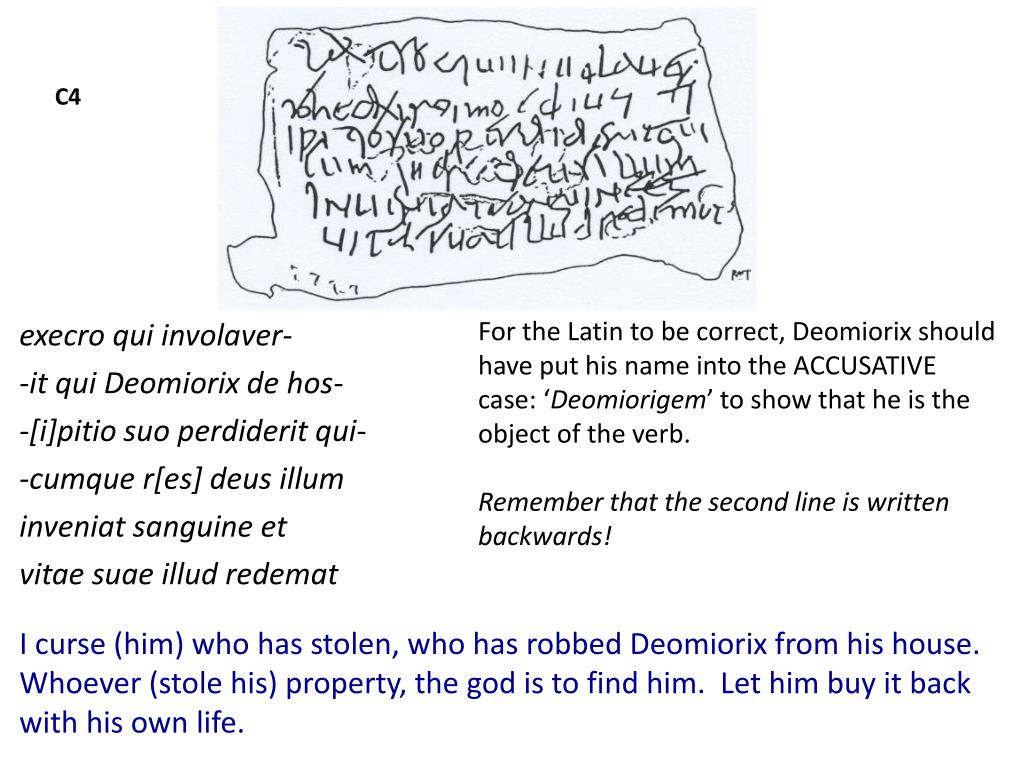 C4
execro qui involaver-
-it qui Deomiorix de hos-
-[i]pitio suo perdiderit qui-
-cumque r[es] deus illum
inveniat sanguine et
vitae suae illud redemat
For the Latin to be correct, Deomiorix should
have put his name into the ACCUSATIVE
case: ‘Deomiorigem’ to show that he is the
object of the verb.
Remember that the second line is written
backwards!
I curse (him) who has stolen, who has robbed Deomiorix from his house.
Whoever (stole his) property, the god is to find him.  Let him buy it back
with his own life.